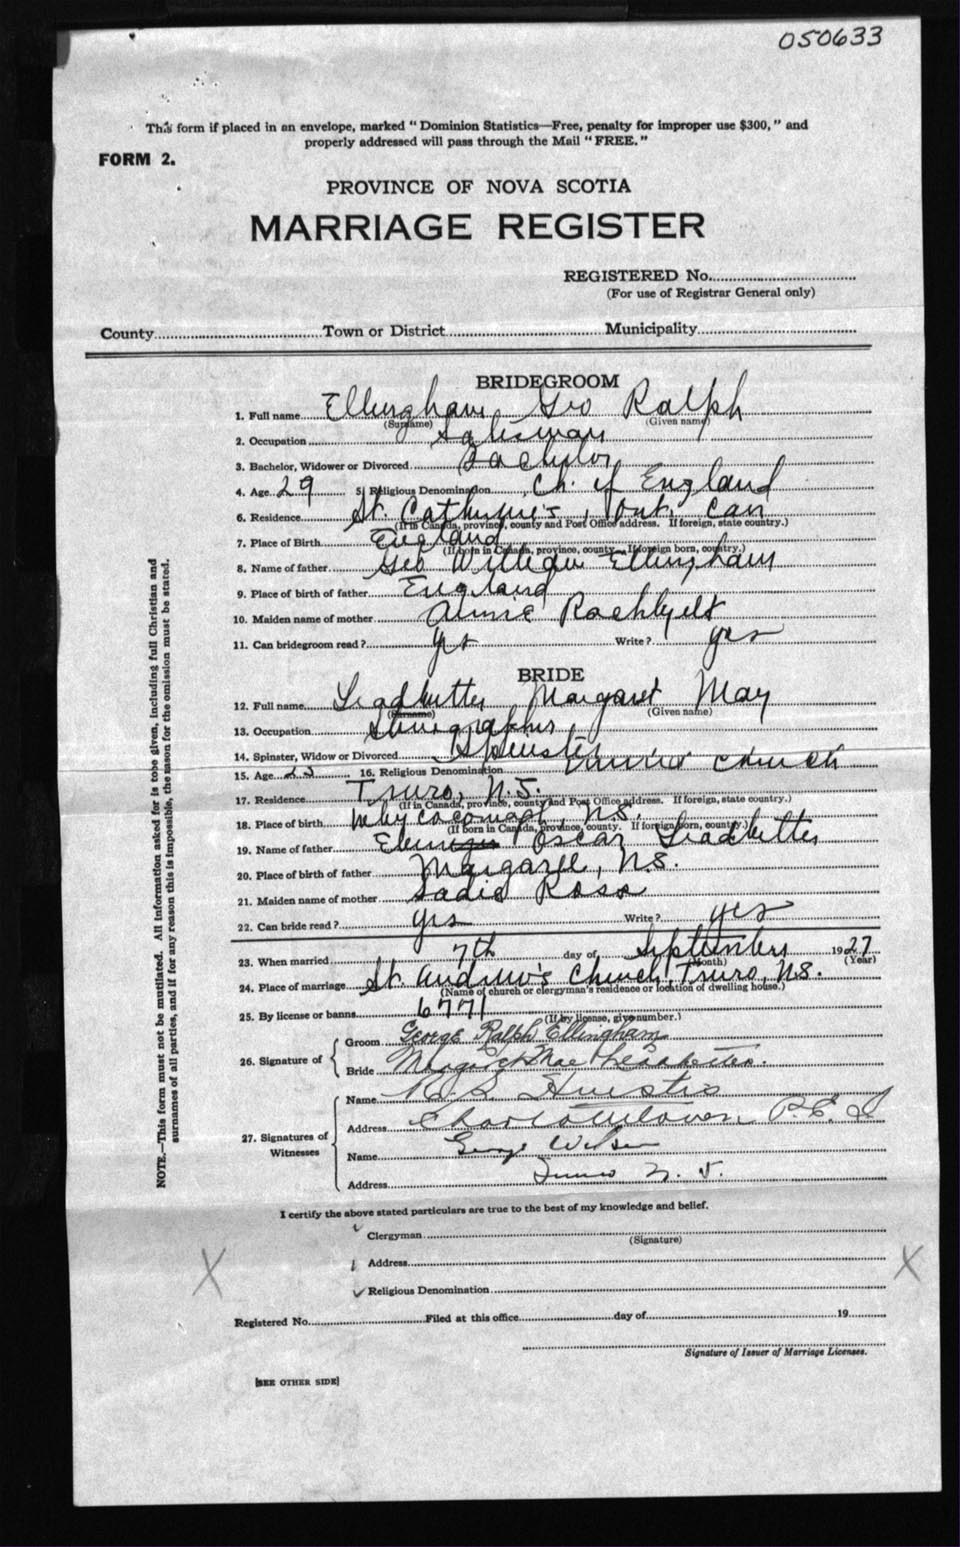 050633
This form if placed in an envelope, marked "Dominion Statistics—Free, penalty for improper use $300," and
properly addressed will pass through the Mail "FREE."
FORM 2.
PROVINCE OF NOVA SCOTIA
MARRIAGE REGISTER
REGISTERED No.
(For use of Registrar General only)
County Town or District Municipality
BRIDEGROOM
1. Full name Ellingham Geo Ralph
(Surname) (Given name)
2. Occupation Salesman
3. Bachelor, Widower or Divorced Bachelor
4. Age 29 5. Religious Denomination Ch. of England
6. Residence St. Catherine's, Ont. Can
(If in Canada, province, county and Post Office address. If foreign, state country.)
7. Place of Birth England
(If born in Canada, province, county. If foreign born, country.)
8. Name of father Geo William Ellingham
9. Place of birth of father England
10. Maiden name of mother Annie
11. Can bridegroom read? yes Write? yes
BRIDE
12. Full name Leadbetter Margaret May
(Surname) (Given name)
13. Occupation Stenographer
14. Spinster, Widow or Divorced Spinster
15. Age 16. Religious Denomination United Church
17. Residence Truro, N.S.
(If in Canada, province, county and Post Office address. If foreign, state country.)
18. Place of birth Whycocomagh, N.S.
(If born in Canada, province, county. If foreign born, country.)
19. Name of father Oscar Leadbetter
20. Place of birth of father Margaree, N.S.
21. Maiden name of mother Sadie Ross
22. Can bride read? yes Write? yes
23. When married 7th day of September 1927
(Month) (Year)
24. Place of marriage St. Andrew's Church, Truro, N.S.
(Name of church or clergyman's residence or location of dwelling house.)
25. By license or banns 6771
(If by license, give number.)
26. Signature of
Groom George Ralph Ellingham
Bride Leadbetter.
27. Signatures of
Witnesses
Name
Address Charlottetown P.E.I
Name George Wilson
Address Truro N.S.
I certify the above stated particulars are true to the best of my knowledge and belief.
Clergyman
(Signature)
Address
Religious Denomination
Registered No. Filed at this office day of 19
Signature of Issuer of Marriage Licenses.
[SEE OTHER SIDE]
NOTE.—This form must not be mutilated. All information asked for is to be given, including full Christian and
surnames of all parties, and if for any reason this is impossible, the reason for the omission must be stated.
X
X